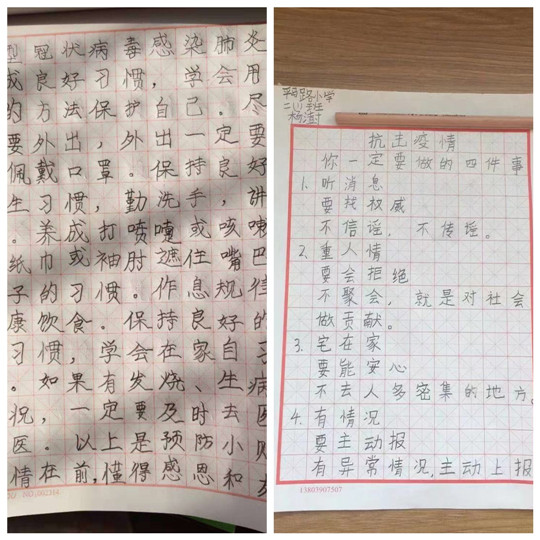 型冠状病毒感染肺炎
成良好习惯，学会用
的方法保护自己。尽
要外出，外出一定要
佩戴口罩。保持良好
生习惯，勤洗手，讲
。养成打喷嚏或咳嗽
纸巾或袖肘遮住嘴巴
子的习惯。作息规律
康饮食。保持良好的
习惯，学会在家自
。如果有发烧、生病
况，一定要及时去医
医。以上是预防小
情在前，懂得感恩和
平路小学
二(1)班
抗击疫情
你一定要做的四件事
1.听消息
要找权威
不信谣，不传谣。
2.重人情
要会拒绝
不聚会，就是对社会
做贡献。
3.宅在家
要能安心
不去人多密集的地方。
4.有情况
要主动报
有异常情况，主动上报
13803907507